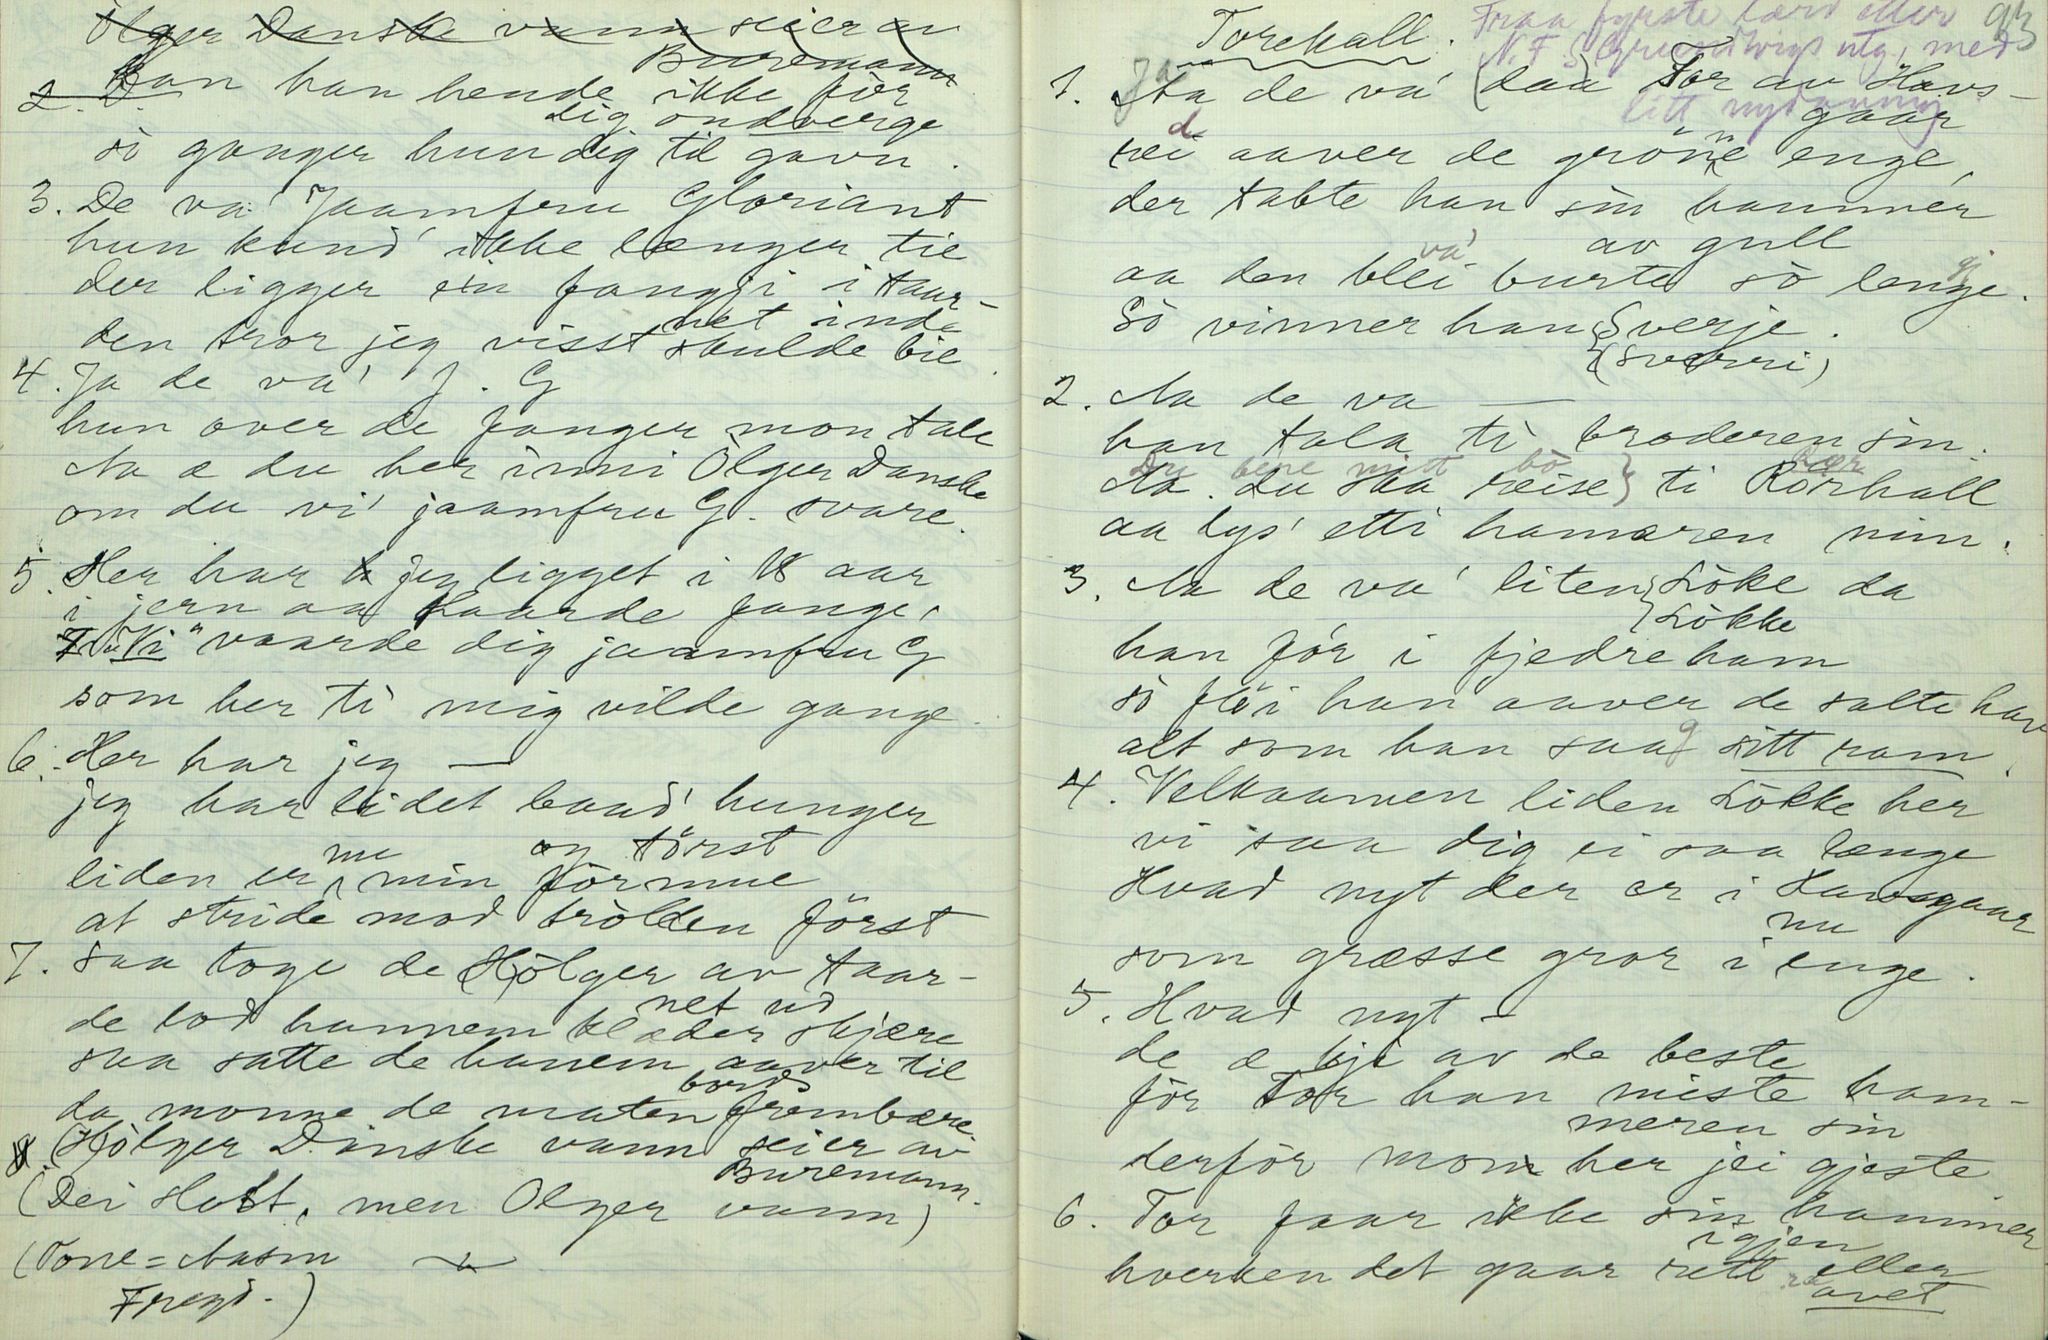 Ölger Danske vann seier av
Buremann
2. D. Kan han hende ikke för
dig ondverge
så ganger hun dig til gavn.
3. De va' Jaamfru Gloriant
hun kund' ikke længer tie
der ligger ein fangji i taar-
net inde
den tror jeg visst skulde bie.
4. Ja de va' J. G
hun over de fanger mon tale
Aa æ du her inni Ölger Danske
om du vi' jaamfru G. svare.
5. Her har jeg ligget i 18 aar
i jern aa haarde fange,
"Vi" vaarde dig jaamfru G
som her ti mig vilde gange.
6. Her har jeg —
jeg har lidet baad' hunger
og törst
liden er nu min förmue
at stride mod trölden först
7. Saa toge de Hölger av taar-
net ud
de lod hannem klæder skjære
saa satte de hanem aaver til
bords
da monne de maten frembære.
8. (H)ölger Danske vann seier av
Buremann.
(Dei Holst, men Olger vann)
(Tone = Aasm
Fregd.)
93
Torekall.
Fraa fyrste færd etter
N. F. S. Grundtvigs utg, med
litt nydanning
1. Ja Aa de va' (daa) Tor av Havs-
gaar
rei d aaver de gröne enge,
der tabte han sin hammer
av gull
aa den blei va' burte so lenge.
Så vinner han Sverje.
(Sverri)
2. Aa de va —
han tala ti broderen sin.
Du bere mitt bö
Aa du ska reise ti Rörhall
aa lys' etti hamaren min.
3. Aa de va' liten Löke da
Lökke
han för i fjedreham
så flöi han aaver de salte hav
alt som han saag sitt ram.
4. Velkaamen liden Lökke her
vi saa dig ei saa længe
Hvad nyt der er i Havsgaar
nu
som græsse gror i enge.
5. Hvad nyt —
de æ kji av de beste
för Tor han miste ham-
meren sin
derför mon her jei gjeste
6. Tor faar ikke sin hammer
igjen
hverken det gaar rett eller
avet